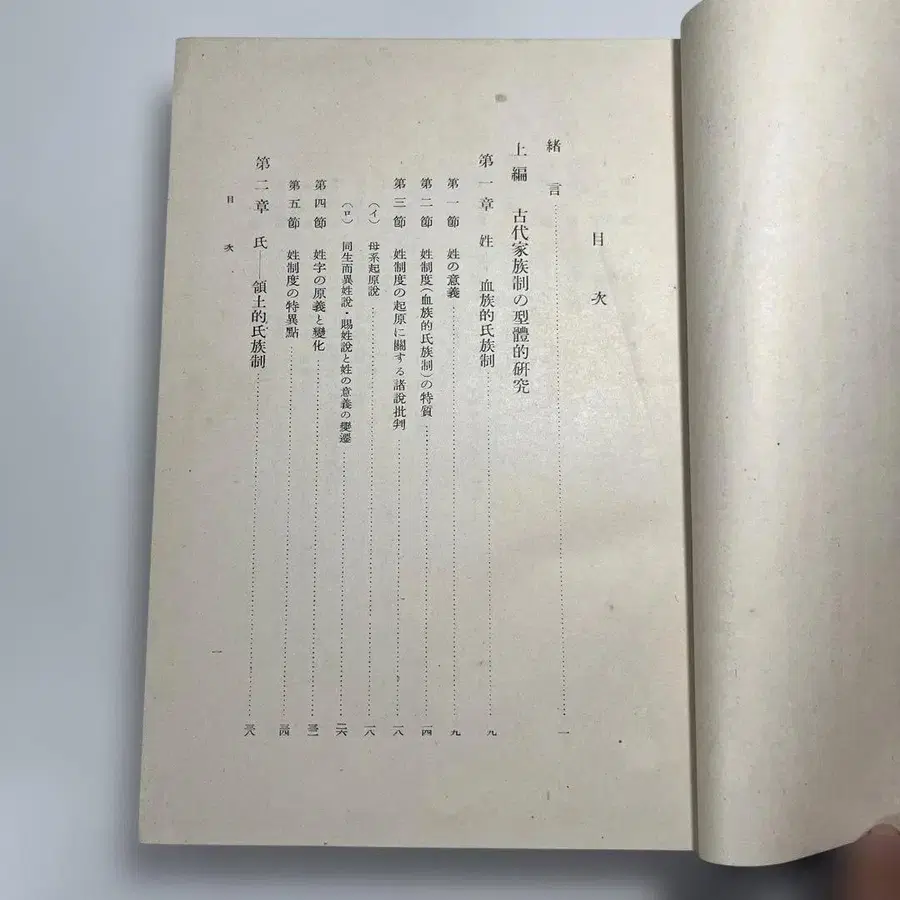 目次
緒言……一
上編 古代家族制の型體的研究
第一章 姓——血族的氏族制……九
第一節 姓の意義……九
第二節 姓制度(血族的氏族制)の特質……一四
第三節 姓制度の起原に關する諸說批判……一八
(イ) 母系起原說……一八
(ロ) 同生而異姓說・賜姓說と姓の意義の變遷……二六
第四節 姓字の原義と變化……三二
第五節 姓制度の特異點……三四
第二章 氏——領土的氏族制……三八
目次
一